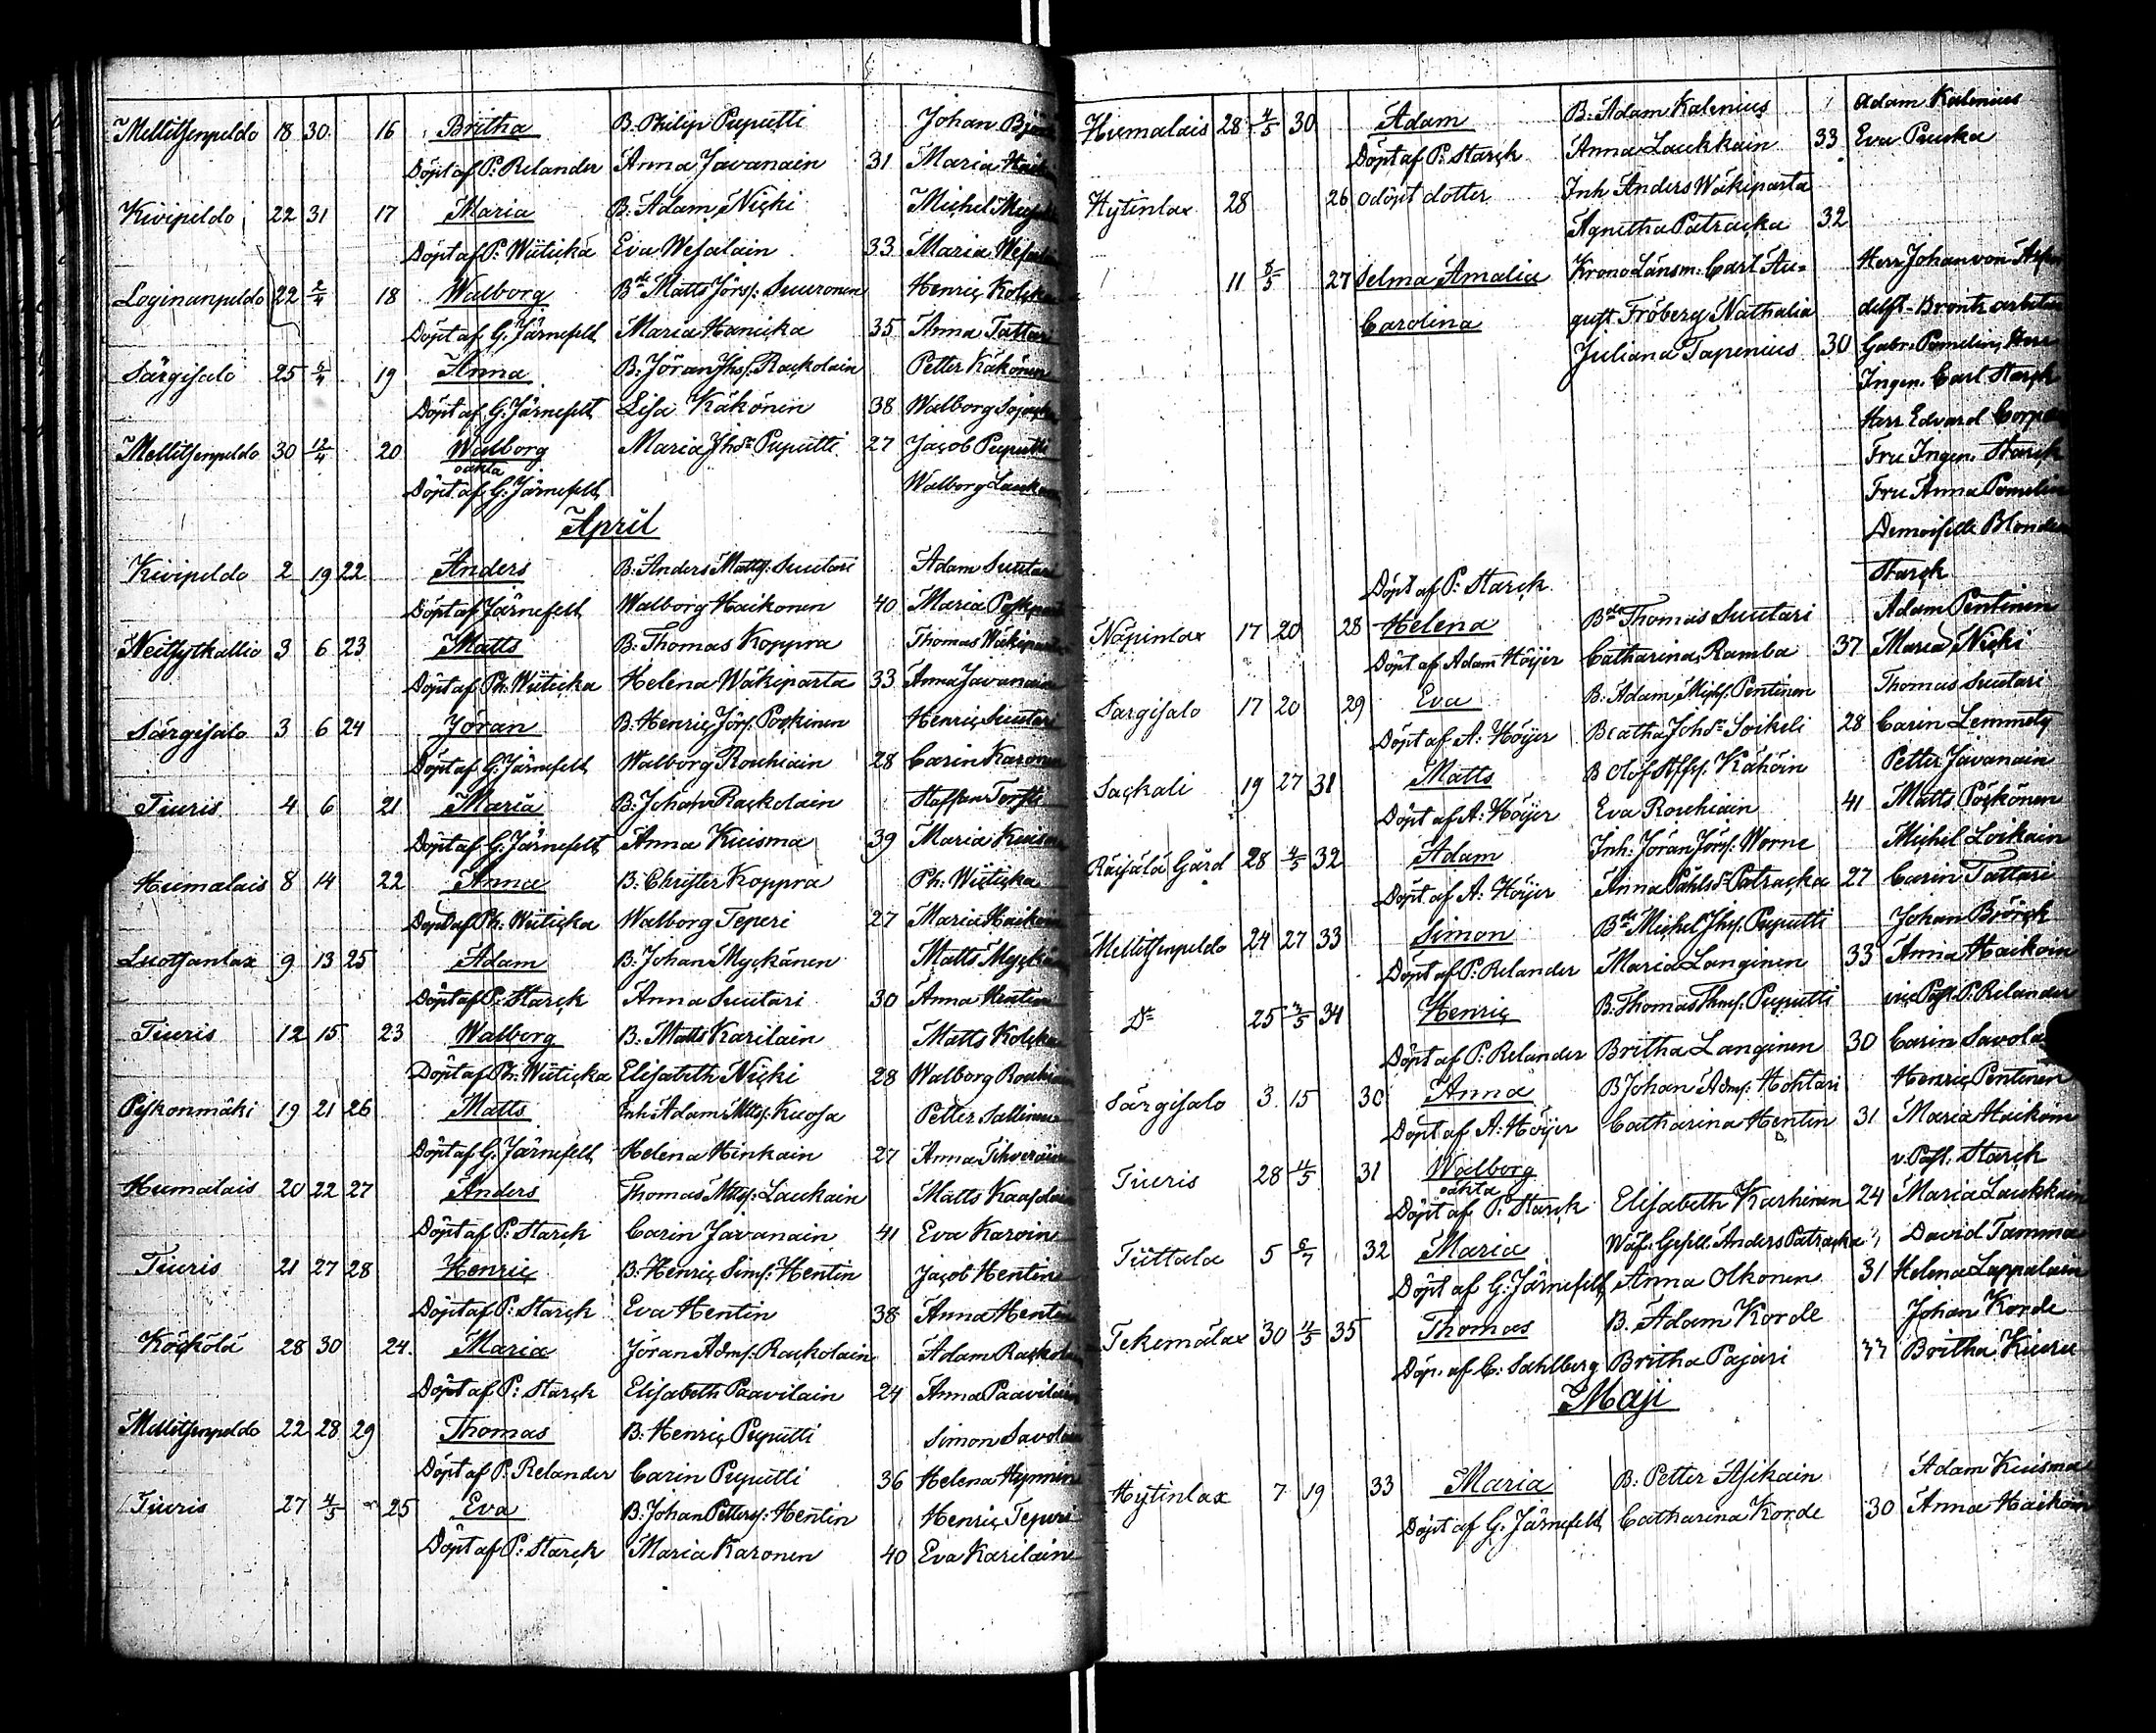 Mellitsenpeldo 18 30 16 Britha B. Philip Puputti Johan
Döpt af P: Relander Anna Javanain 31 Maria
Kivipeldo 22 31 17 Maria B. Adam Nicki Michel
Döpt af P: Wiiticka Eva Wesalain 33 Maria
Loginanpeldo 22 2/4 18 Walborg Bde Matts Jörs: Suuronen Henric
Döpt af G. Järnefelt Maria Hanicka 35 Anna Tattari
Särgisalo 25 5/4 19 Anna B. Jöran Jhs: Rackolain Petter Käkönen
Döpt af G: Järnefelt Lisa Käkönen 38 Walborg
Mellitsenpeldo 30 12/4 20 Walborg Maria Jhsdr Puputti 27 Jacob Puputti
oäkta
Döpt af G. Järnefelt Walborg
April
Kivipeldo 2 19 22 Anders B. Anders Matts: Suutari Adam Suutari
Döpt af Järnefelt Walborg Haikonen 40 Maria
Neitsytkallio 3 6 23 Matts B. Thomas Koppra Thomas Wäkiparta
Döpt af Ph: Wiiticka Helena Wäkiparta 33 Anna Javanain
Särgisalo 3 6 24 Jöran B: Henric Jörs: Poskinen Henric Suutari
Döpt af G. Järnefelt Walborg Rouhiain 28 Carin Karonen
Tiuris 4 6 21 Maria B. Johan Rackolain Staffan Torsti
Döpt af G. Järnefelt Anna Kuisma 39 Maria Kuisma
Humalais 8 14 22 Anna B. Christer Koppra Ph: Wiiticka
Döpt af Ph: Wiiticka Walborg Teperi 27 Maria
Luotsanlax 9 13 25 Adam B. Johan Myckänen Matts
Döpt af P: Starck Anna Suutari 30 Anna Hentin
Tiuris 12 15 23 Walborg B. Matts Karilain Matts
Döpt af Ph: Wiiticka Elisabeth Nicki 28 Walborg
Pyskonmäki 19 21 26 Matts Inh Adam Mtts: Kuosa Petter Sallinen
Döpt af G. Järnefelt Helena Hinkain 27 Anna
Humalais 20 22 27 Anders Thomas Mtts: Laukain Matts
Döpt af P: Starck Carin Javanain 41 Eva
Tiuris 21 27 28 Henric B: Henric Sims: Hentin Jacob Hentin
Döpt af P: Starck Eva Hentin 38 Anna Hentin
Köckölä 28 30 24. Maria Jöran Adms: Rackolain Adam
Döpt af P: Starck Elisabeth Paavilain 24 Anna Paavilain
Mellitsenpeldo 22 28 29 Thomas B: Henric Puputti Simon
Döpt af P. Relander Carin Puputti 36 Helena Hynninen
Tiuris 27 4/5 25 Eva B: Johan Petters: Hentin Henric Teperi
Döpt af P: Starck Maria Karonen 40 Eva Karilain
Humalais 28 4/5 30 Adam B. Adam Kalenius Adam Kalenius
Döpt af P: Starck Anna Laukkain 33 Eva Peuska
Hytinlax 28 26 odöpt dotter Inh Anders Wäkiparta
Agnetha Patracka 32
11 8/5 27 Selma Amalia Krono Länsm: Carl Au= Herr Johan von
Carolina gust Fröberg Nathalia
Juliana Tapenius 30 Gabr:
Ingen. Carl Starck
Herr Edvard
Fru Ingen. Starck
Fru Anna
Demoiselle
Döpt af P: Starck Starck
Näpinlax 17 20 28 Helena Bde Thomas Suutari Adam Pentinen
Döpt af Adam Höijer Catharina Ramba 37 Maria Nicki
Sargisalo 17 20 29 Eva B. Adam Michs: Pentinen Thomas Suutari
Döpt af A: Höijer Beatha Johsdr Soikeli 28 Carin Lemmety
Sackali 19 27 31 Matts B Olof Affs: Käköin Petter Javanain
Döpt af A: Höijer Eva Rouhiain 41 Matts Pöckönen
Räisälä Gård 28 4/5 32 Adam Inh: Jöran Jörs: Worne Michel Loikain
Döpt af A: Höijer Anna Påhlsdr Patracka 27 Carin Tattari
Mellitsenpeldo 24 27 33 Simon Bde Michel Jhs: Puputti Johan Björck
Döpt af P: Relander Maria Langinen 33 Anna Haikoin
Do 25 2/5 34 Henric B. Thomas Thms: Puputti vice Past. P: Relander
Döpt af P: Relander Britha Langinen 30 Carin
Särgisalo 3 15 30 Anna B Johan Adms: Hohtari Henric Pentinen
Döpt af A: Höijer Catharina Hentin 31 Maria Haikoin
Tiuris 28 11/5 31 Walborg v. Past. Starck
oäkta
Döpt af P. Starck Elisabeth Karhinen 24 Maria Laukkain
Tiittala 5 6/7 32 Maria Wäf: Gesell. Anders Patracka David Tamma
Döpt af G: Järnefelt Anna Olkonen 31 Helena Lappalain
Tekemälax 30 11/5 35 Thomas B. Adam Korde Johan Korde
Döp. af C: Sahlberg Britha Pajari 33 Britha Kiuru
Maji
Hytinlax 7 19 33 Maria B: Petter Asikain Adam Kuisma
Döpt af G. Järnefelt Catharina Korde 30 Anna Haikoin